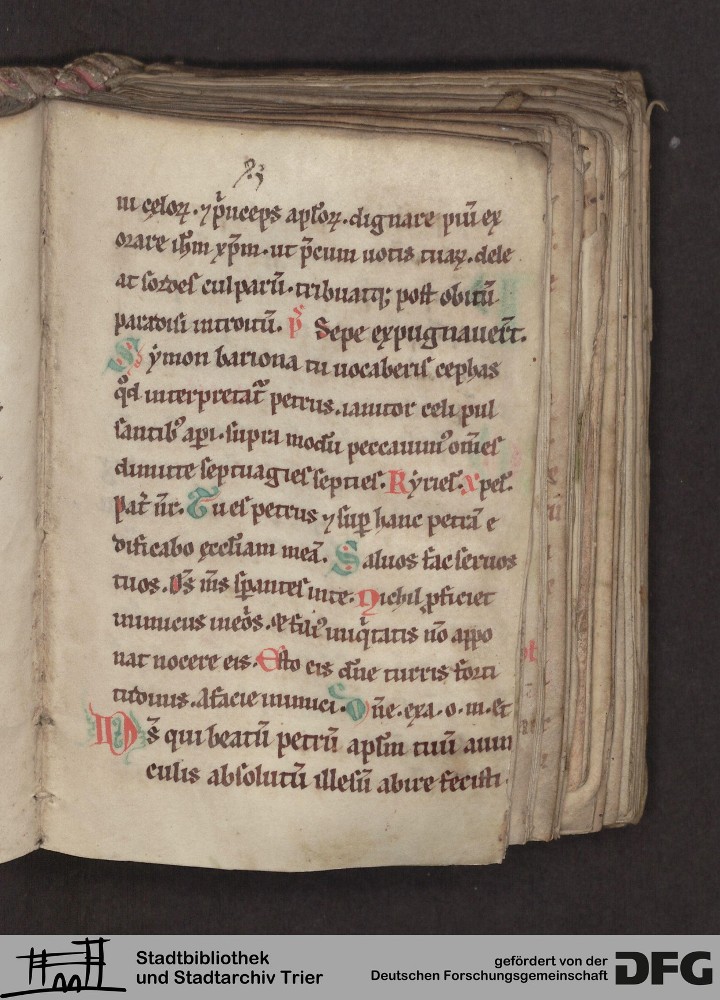 23
in cęloꝝ · ⁊ p̃nceps aptoꝝ · dignare piũ ex
orare ih̃m xp̃m · ut p̃cum uotis tuaꝝ · dele
at sordes culparũ · tribuatqꝫ post obitũ
paradisi introitũ. p̃ Sepe expugnauer̃t.
Symon bariona tu uocaberis cephas
q̃d interpretat᷑ petrus · ianitor celi pul
santibꝰ api · supra modũ peccauimꝰ om̃es
dimitte septuagies septies. Kyries. xpes.
Pat̃ nr̃. Tu es petrus ⁊ sup̱ hanc petrã e
dificabo ęccl̃iam meã. Saluos fac seruos
tuos. Ds̃ m̃s sp̱antes in te. Nichil ꝓficiet
inimicus in eos̃. ⁊ filiꝰ iniq̃tatis nõ appo
nat nocere eis. Esto eis dñe turris forti
tudinis. A facie inimici. Dñe. exa. o. m. et
Ds̃ qui beatũ petrũ aptm̃ tuũ a uin
culis absolutũ illesũ abire fecisti.
Stadtbibliothek
und Stadtarchiv Trier
gefördert von der
Deutschen Forschungsgemeinschaft
DFG